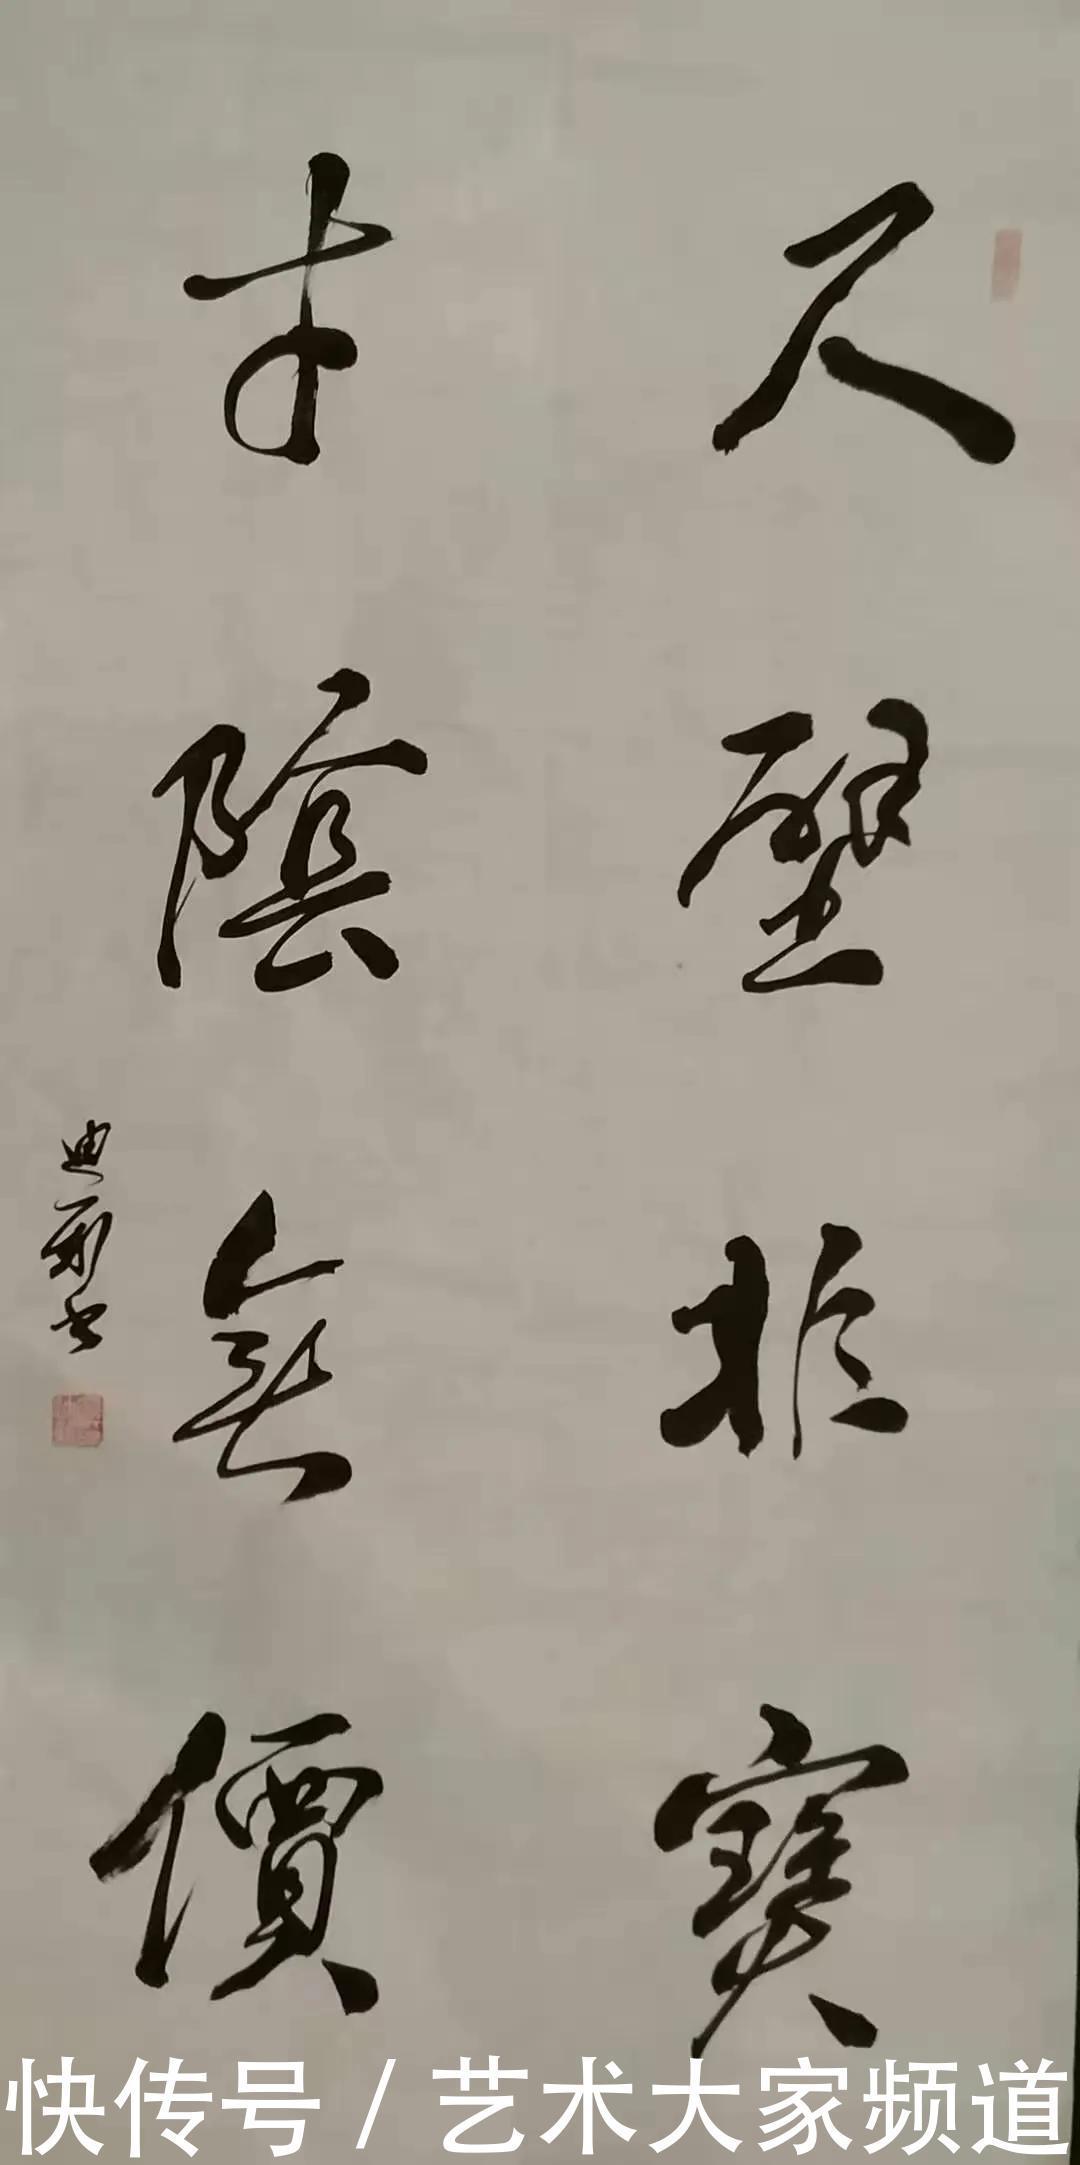 尺璧非寶
寸陰無價
迪
書
快传号/艺术大家频道